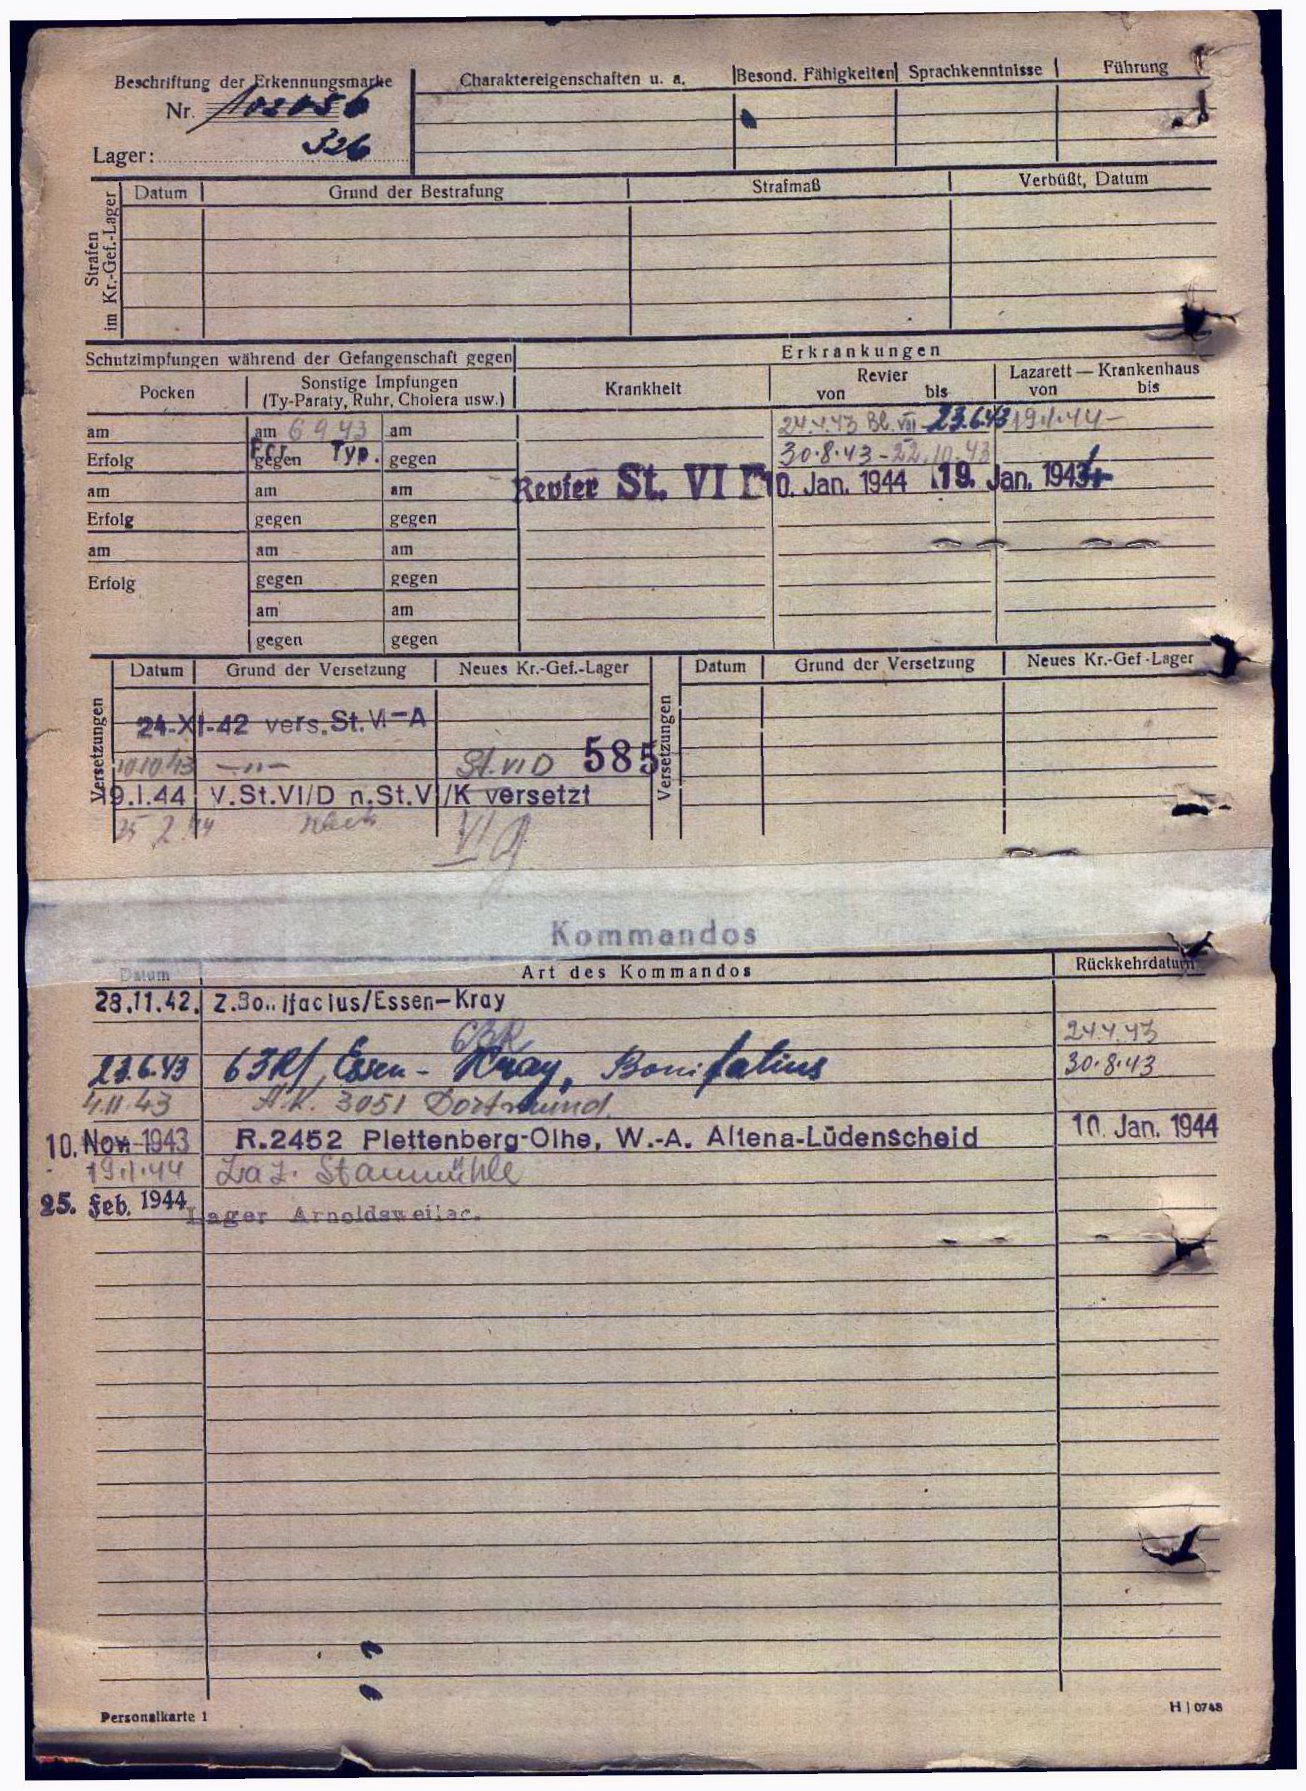 Beschriftung der Erkennungsmarke
Nr. 102056
Lager: 326
Charaktereigenschaften u. a. Besond. Fähigkeiten Sprachkenntnisse Führung
Strafen im Kr.-Gef.-Lager
Datum Grund der Bestrafung Strafmaß Verbüßt, Datum
Schutzimpfungen während der Gefangenschaft gegen
Erkrankungen
Pocken
Sonstige Impfungen
(Ty-Paraty, Ruhr, Cholera usw.)
Krankheit
Revier
von bis
Lazarett — Krankenhaus
von bis
am am 6 9 43 am 24.4.43 23.6.43 19.1.44 -
Erfolg gegen Typ. gegen 30.8.43 - 22.10.43
am am am Revier St. VI D 10. Jan. 1944 19. Jan. 1944
Erfolg gegen gegen
am am am
Erfolg gegen gegen
am am
gegen gegen
Versetzungen
Datum Grund der Versetzung Neues Kr.-Gef.-Lager
24-XI-42 vers. St. VI-A
10.10.43 -"- St. VI D 585
19.I.44 V.St.VI/D n.St.VI/K versetzt
25 2 44 nach VI G
Versetzungen
Datum Grund der Versetzung Neues Kr.-Gef-Lager
Kommandos
Datum Art des Kommandos Rückkehrdatum
28.11.42. Z.Bonifacius/Essen-Kray
63R 24.4.43
23.6.43 63R/ Essen - Kray, Bonifatius 30.8.43
4.11.43 A.K. 3051 Dortmund.
10. Nov. 1943 R.2452 Plettenberg-Olhe, W.-A. Altena-Lüdenscheid 10. Jan. 1944
19.1.44 Laz. Staumühle
25. Feb. 1944 Lager Arnoldsweiler.
Personalkarte 1
H | 0748